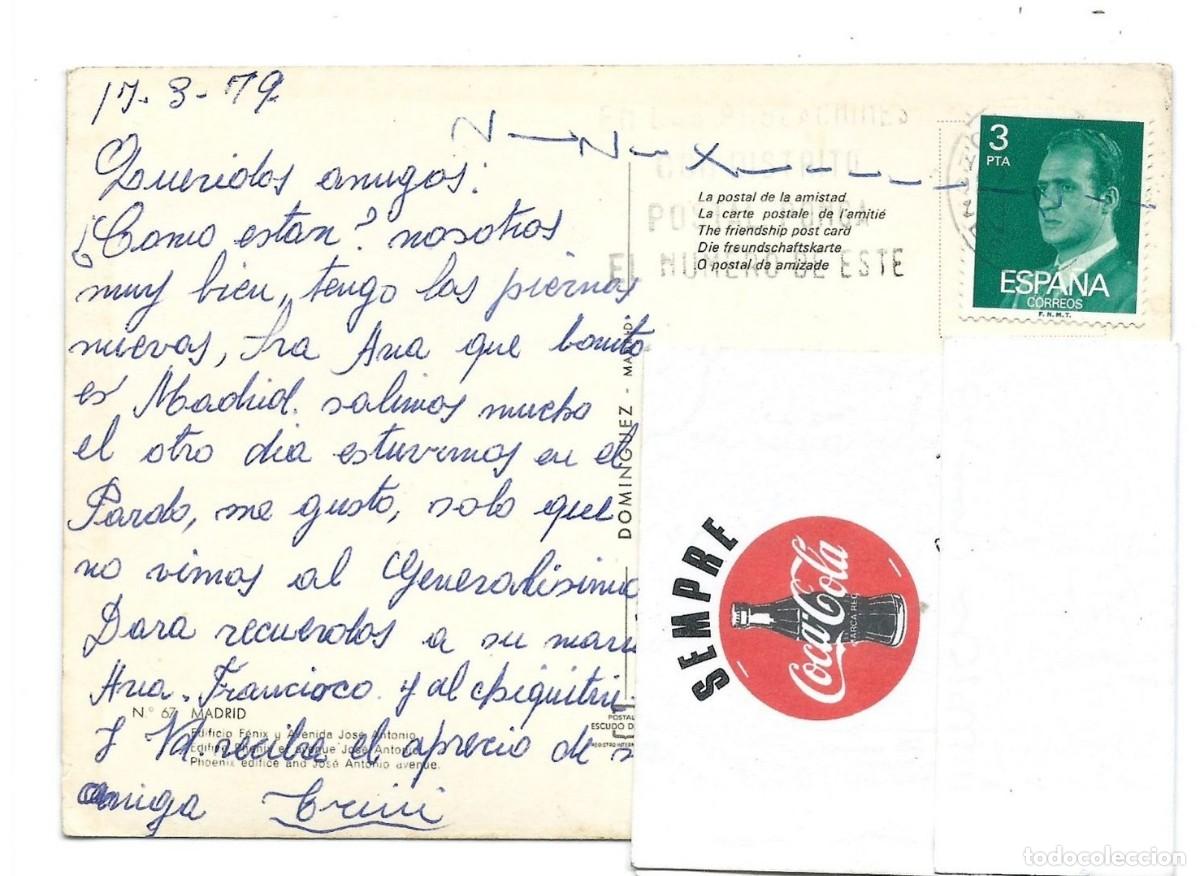 17-3-79
Queridos amigos:
¿Como estan? nosotros
muy bien, tengo las piernas
nuevas, Sra Ana que bonito
es Madrid. salimos mucho
el otro dia estuvimos en el
Pardo, me gusto, solo que
no vimos al Generalisimo
Dara recuerdos a su mari
Ana. Francisco y al chiquitin
y Vd. recibe el aprecio de s
amiga Trini
N.° 67 MADRID
Edificio Fénix y Avenida José Antonio.
Edifice Phénix et avenue José Antonio.
Phoenix edifice and José Antonio avenue.
DOMINGUEZ - MADRID
POSTAL
ESCUDO D
DISTRITO
POSTAL PONGA
EL NUMERO DE ESTE
La postal de la amistad
La carte postale de l'amitié
The friendship post card
Die freundschaftskarte
O postal da amizade
3
PTA
ESPAÑA
CORREOS
F.N.M.T.
SEMPRE
Coca-Cola
MARCA REG
todocoleccion